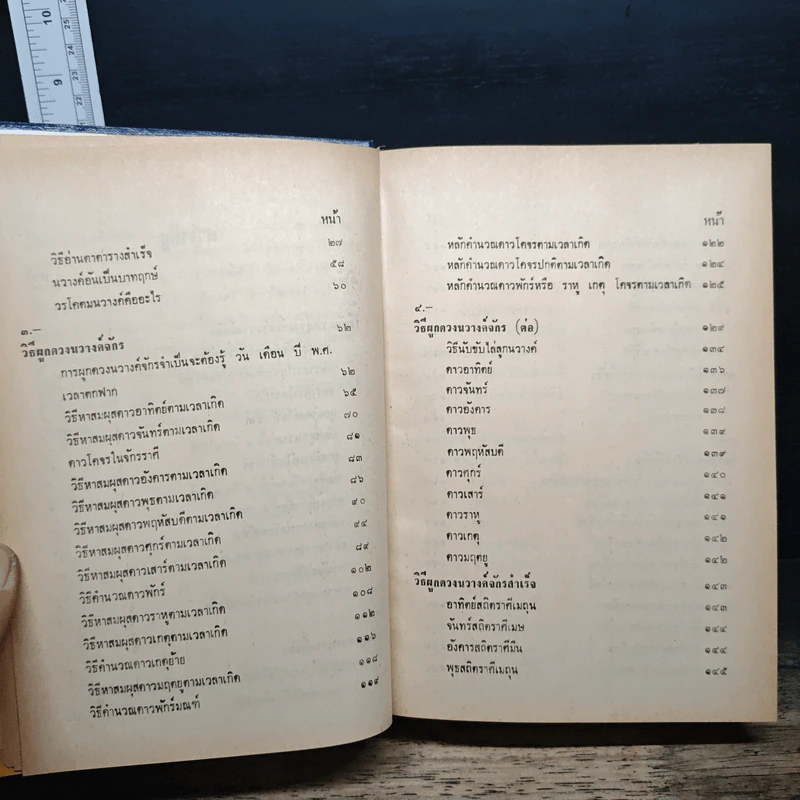 หน้า
วิธีอ่านดาตารางสำเร็จ ๒๗
นวางค์อันเป็นบาทฤกษ์ ๕๘
วรโคตมนวางค์คืออะไร ๖๐
๓.—
วิธีผูกดวงนวางค์จักร ๖๒
การผูกดวงนวางค์จักรจำเป็นจะต้องรู้ วัน เดือน ปี พ.ศ.
เวลาตกฟาก ๖๒
วิธีหาสมผุสดาวอาทิตย์ตามเวลาเกิด ๖๕
วิธีหาสมผุสดาวจันทร์ตามเวลาเกิด ๗๐
ดาวโคจรในจักรราศี ๘๑
วิธีหาสมผุสดาวอังคารตามเวลาเกิด ๘๓
วิธีหาสมผุสดาวพุธตามเวลาเกิด ๘๖
วิธีหาสมผุสดาวพฤหัสบดีตามเวลาเกิด ๙๐
วิธีหาสมผุสดาวศุกร์ตามเวลาเกิด ๙๔
วิธีหาสมผุสดาวเสาร์ตามเวลาเกิด ๘๙
วิธีคำนวณดาวพักร์ ๑๐๒
วิธีหาสมผุสดาวราหูตามเวลาเกิด ๑๐๘
วิธีหาสมผุสดาวเกตุตามเวลาเกิด ๑๑๒
วิธีคำนวณดาวเกตุย้าย ๑๑๖
วิธีหาสมผุสดาวมฤตยูตามเวลาเกิด ๑๑๘
วิธีคำนวณดาวพักร์มณฑ์ ๑๑๙
หน้า
หลักคำนวณดาวโคจรตามเวลาเกิด ๑๒๒
หลักคำนวณดาวโคจรปกติตามเวลาเกิด ๑๒๔
หลักคำนวณดาวพักร์หรือ ราหู เกตุ โคจรตามเวลาเกิด ๑๒๕
๔.—
วิธีผูกดวงนวางค์จักร (ต่อ) ๑๒๙
วิธีนับขับไล่ลูกนวางค์ ๑๓๔
ดาวอาทิตย์ ๑๓๖
ดาวจันทร์ ๑๓๗
ดาวอังคาร ๑๓๘
ดาวพุธ ๑๓๙
ดาวพฤหัสบดี ๑๓๙
ดาวศุกร์ ๑๔๐
ดาวเสาร์ ๑๔๑
ดาวราหู ๑๔๑
ดาวเกตุ ๑๔๒
ดาวมฤตยู ๑๔๒
วิธีผูกดวงนวางค์จักรสำเร็จ ๑๔๓
อาทิตย์สถิตราศีเมถุน ๑๔๓
จันทร์สถิตราศีเมษ ๑๔๔
อังคารสถิตราศีมีน ๑๔๔
พุธสถิตราศีเมถุน ๑๔๕
10
9
25
24
23
22